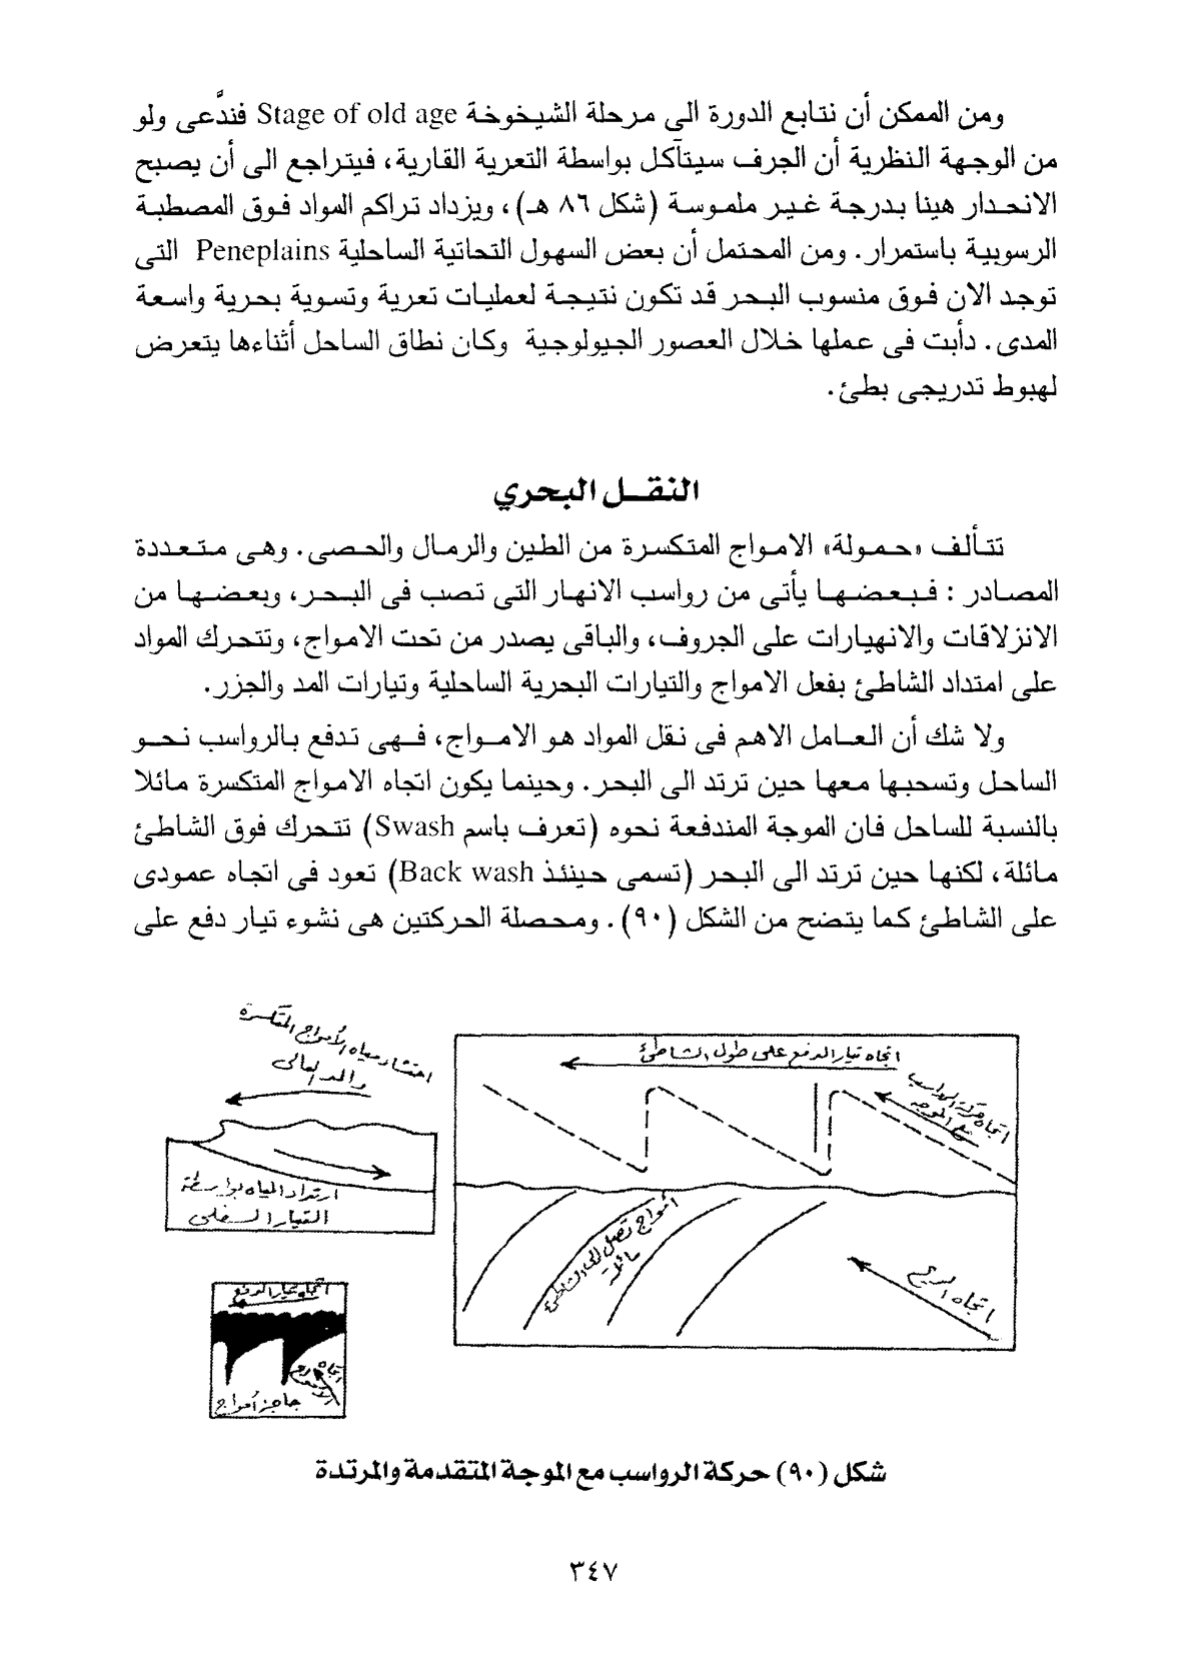 ومن الممكن أن نتابع الدورة الى مرحلة الشيخوخة Stage of old age فندَّعى ولو
من الوجهة النظرية أن الجرف سيتآكل بواسطة التعرية القارية، فيتراجع الى أن يصبح
الانحدار هينا بدرجة غير ملموسة (شكل ٨٦ هـ)، ويزداد تراكم المواد فوق المصطبة
الرسوبية باستمرار. ومن المحتمل أن بعض السهول التحاتية الساحلية Peneplains التى
توجد الان فوق منسوب البحر قد تكون نتيجة لعمليات تعرية وتسوية بحرية واسعة
المدى. دأبت فى عملها خلال العصور الجيولوجية وكان نطاق الساحل أثناءها يتعرض
لهبوط تدريجى بطئ.
النقل البحري
تتألف «حمولة» الامواج المتكسرة من الطين والرمال والحصى. وهى متعددة
المصادر : فبعضها يأتى من رواسب الانهار التى تصب فى البحر، وبعضها من
الانزلاقات والانهيارات على الجروف، والباقى يصدر من تحت الامواج، وتتحرك المواد
على امتداد الشاطئ بفعل الامواج والتيارات البحرية الساحلية وتيارات المد والجزر.
ولا شك أن العامل الاهم فى نقل المواد هو الامواج، فهى تدفع بالرواسب نحو
الساحل وتسحبها معها حين ترتد الى البحر. وحينما يكون اتجاه الامواج المتكسرة مائلا
بالنسبة للساحل فان الموجة المندفعة نحوه (تعرف باسم Swash) تتحرك فوق الشاطئ
مائلة، لكنها حين ترتد الى البحر (تسمى حينئذ Back wash) تعود فى اتجاه عمودى
على الشاطئ كما يتضح من الشكل (٩٠). ومحصلة الحركتين هى نشوء تيار دفع على
اتجاه تيار الدفع على طول الشاطئ
اتجاه حركة الرواسب
مع الموجه
أمواج تصل إلى الشاطئ
مائلة
اتجاه الريح
انتشار مياه الأمواج المتكسرة
والمد العالى
ارتداد المياه بواسطة
التيار السفلى
اتجاه تيار الدفع
اتجاه
حاجز أمواج
شكل (٩٠) حركة الرواسب مع الموجة المتقدمة والمرتدة
٣٤٧